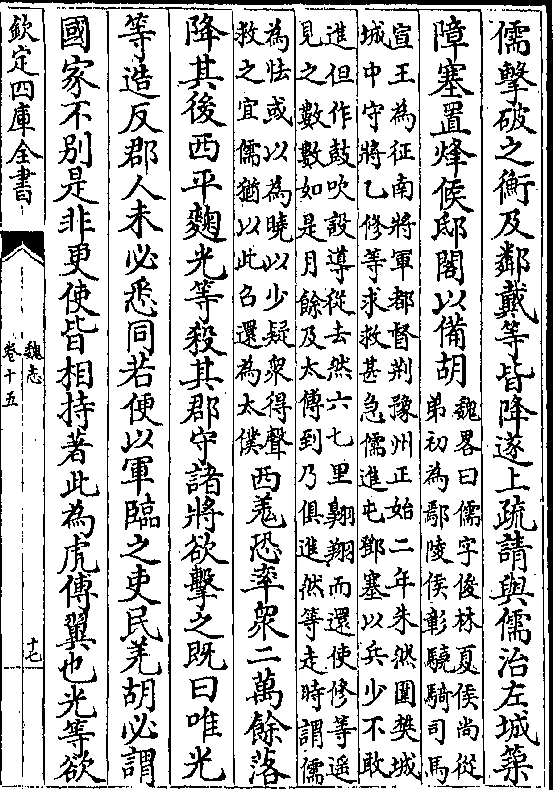 儒擊破之衡及鄰戴等皆降遂上疏請與儒治左城築
障塞置烽候邸閣以備胡
魏畧曰儒字俊林夏侯尚從
弟初為鄢陵侯彰驍騎司馬
宣王為征南將軍都督荆豫州正始二年朱然圍樊城
城中守將乙修等求救甚急儒進屯鄧塞以兵少不敢
進但作鼓吹設導從去然六七里翱翔而還使修等遥
見之數數如是月餘及太傅到乃俱進然等走時謂儒
為怯或以為曉以少疑衆得聲
救之宜儒猶以此召還為太僕
西羌恐率衆二萬餘落
降其後西平麴光等殺其郡守諸將欲擊之既曰唯光
等造反郡人未必悉同若便以軍臨之吏民羌胡必謂
國家不別是非更使皆相持著此為虎傅翼也光等欲
欽定四庫全書
魏志
卷十五
十七